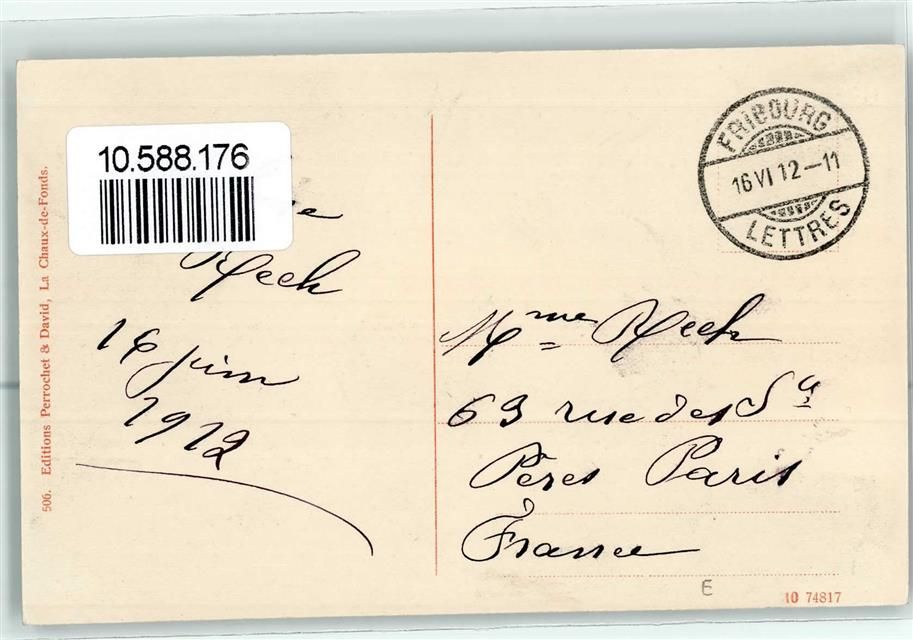 10.588.176
Reeh
16 juin
1912
506. Editions Perrochet & David, La Chaux-de-Fonds.
FRIBOURG
16 VI 12-11
LETTRES
Mme Reeh
63 rue des Sts
Pères Paris
France
E
10 74817